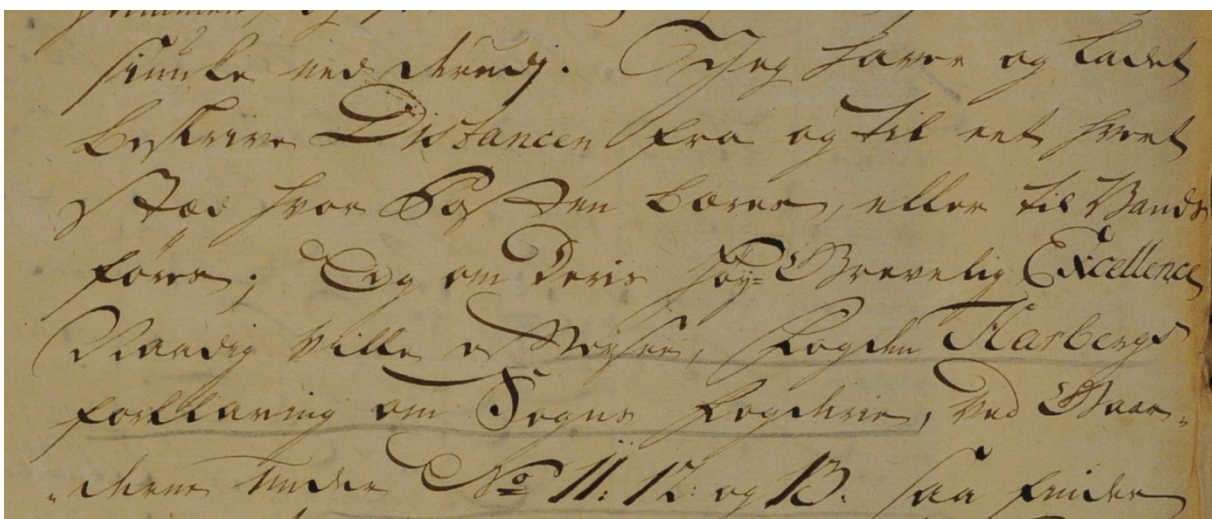 siunke ned derudj. Jeg haver og ladet
beskrive Distancen fra og til eet hvert
stæd hvor Posten bæres, eller til Vands
føres; Og om Deris Høy=Grevelig Excellence
Naadig ville efftersee, Fogden Karbergs
forklaring om Sogns Fogderie, ved Gaar„
„derne under No 11: 12: og 13. saa finder